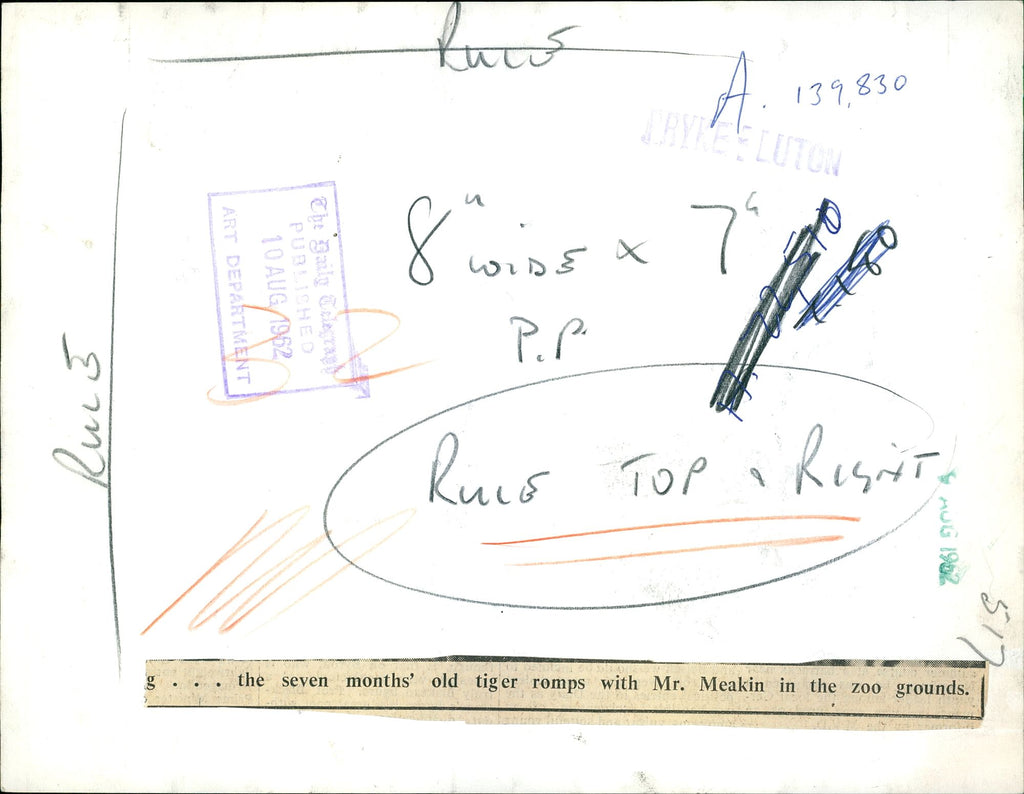 RULE
A. 139,830
LUTON
The Daily Telegraph
PUBLISHED
10 AUG 1962
ART DEPARTMENT
8" WIDE x 7"
P.P.
RULE
RULE TOP & RIGHT
AUG 1962
g . . . the seven months' old tiger romps with Mr. Meakin in the zoo grounds.